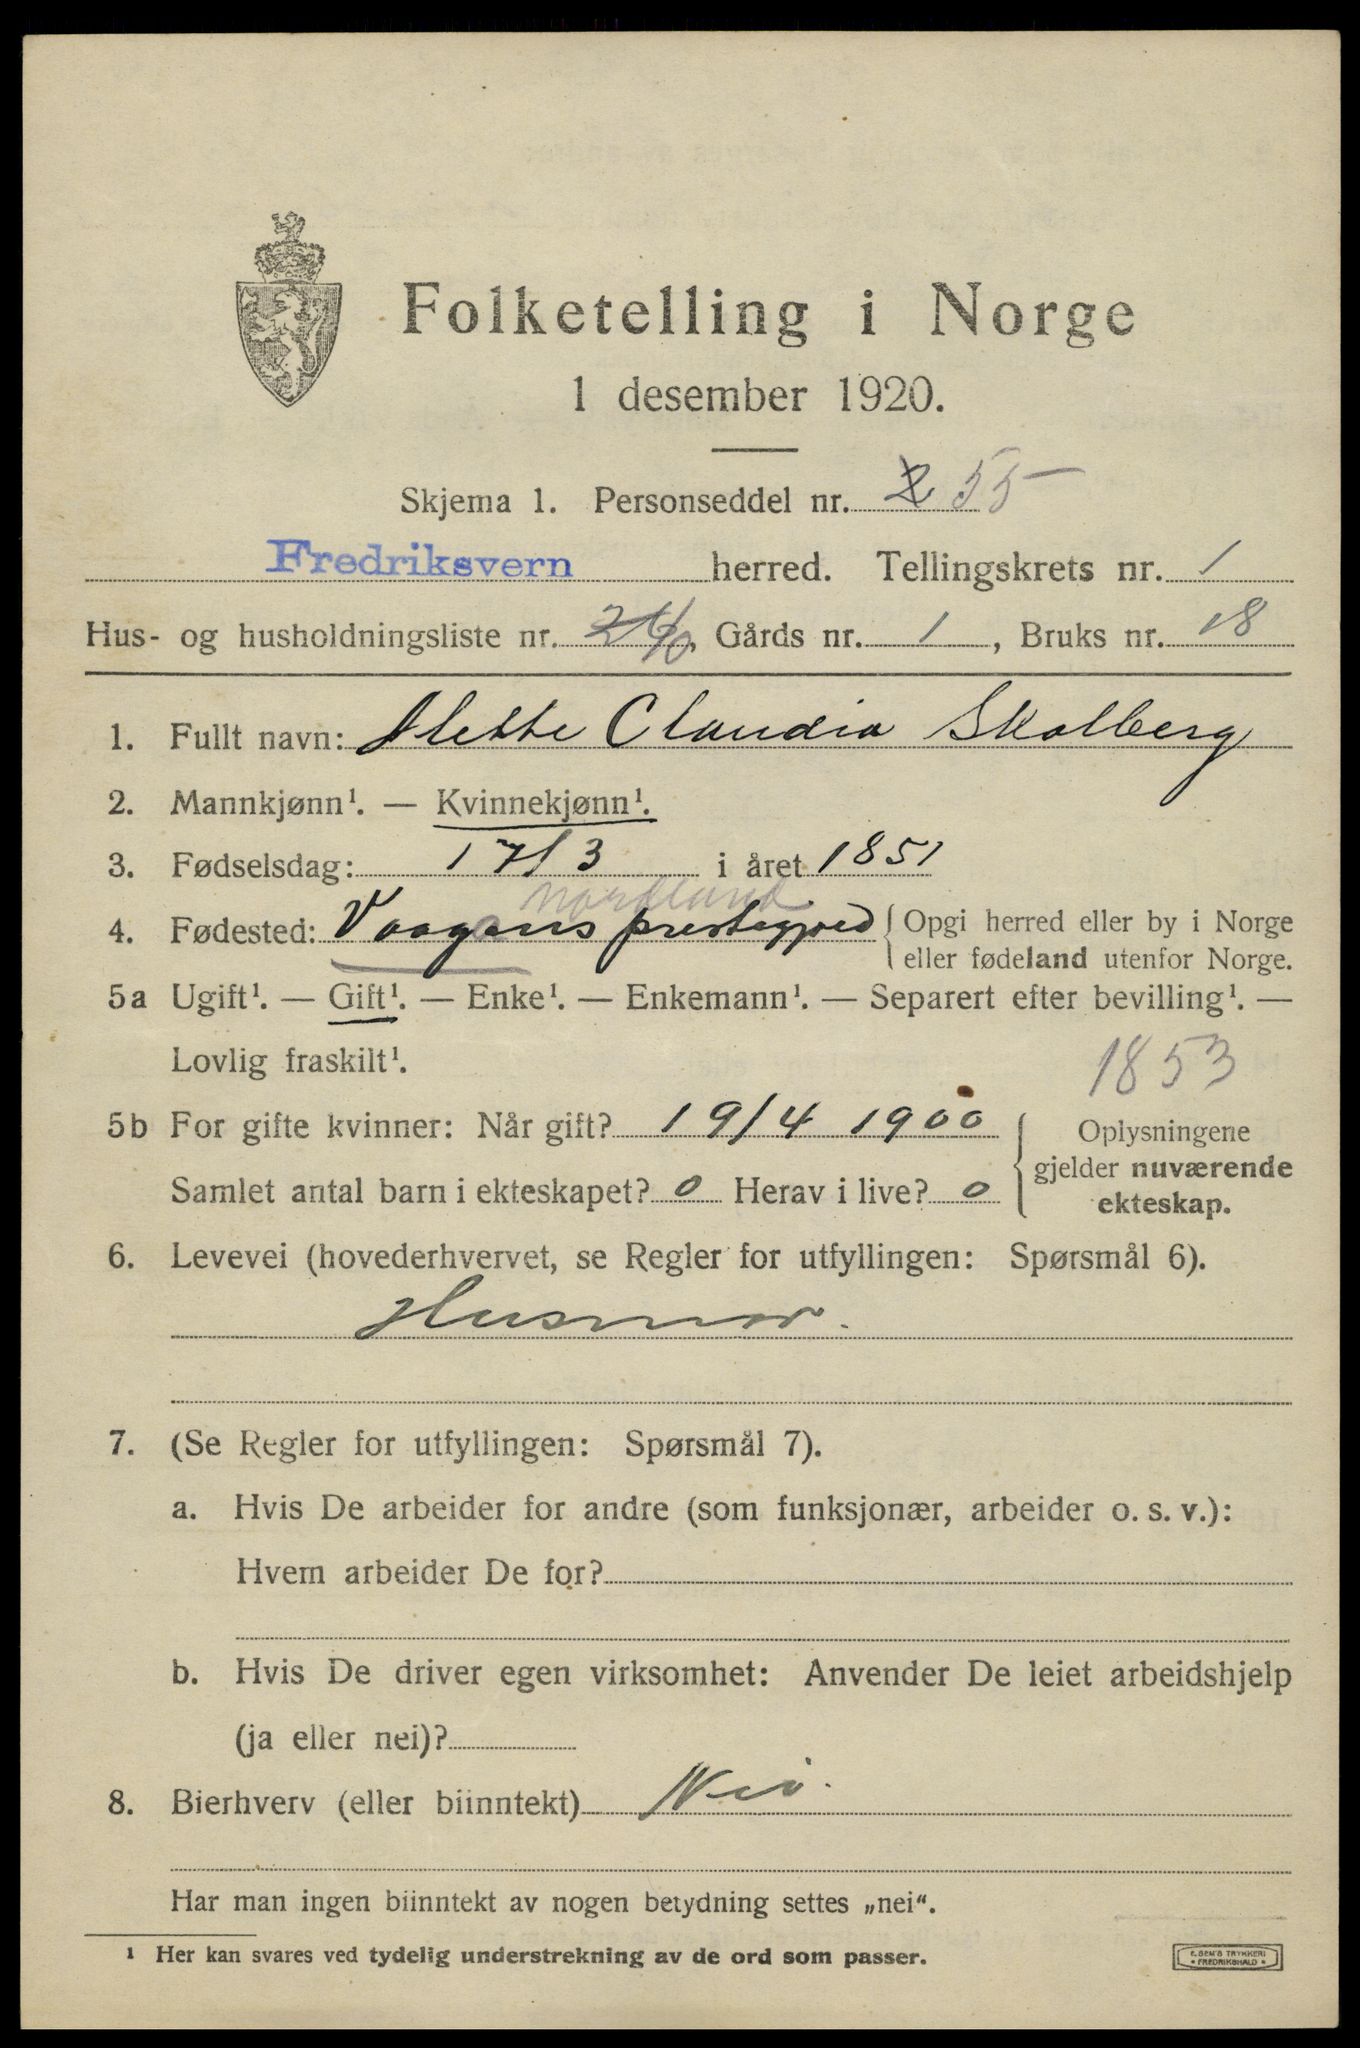 Folketelling i Norge
1 desember 1920.
Skjema 1. Personseddel nr. 2 55
Fredriksvern herred. Tellingskrets nr. 1
Hus- og husholdningsliste nr. Gårds nr. 1, Bruks nr. 18
1. Fullt navn: Alette Claudia Skolberg
2. Mannkjønn¹. — Kvinnekjønn¹.
3. Fødselsdag: 17/3 i året 1851
nordland
4. Fødested: Vaagans prestegjeld { Opgi herred eller by i Norge
eller fødeland utenfor Norge.
5a Ugift¹. — Gift¹. — Enke¹. — Enkemann¹. — Separert efter bevilling¹. —
Lovlig fraskilt¹.
1853
5b For gifte kvinner: Når gift? 19/4 1900
Samlet antal barn i ekteskapet? 0 Herav i live? 0
{ Oplysningene
gjelder nuværende
ekteskap.
6. Levevei (hovederhvervet, se Regler for utfyllingen: Spørsmål 6).
Husmor.
7. (Se Regler for utfyllingen: Spørsmål 7).
a. Hvis De arbeider for andre (som funksjonær, arbeider o. s. v.):
Hvem arbeider De for?
b. Hvis De driver egen virksomhet: Anvender De leiet arbeidshjelp
(ja eller nei)?
8. Bierhverv (eller biinntekt) Nei.
Har man ingen biinntekt av nogen betydning settes „nei“.
¹ Her kan svares ved tydelig understrekning av de ord som passer.
E. SEM'S TRYKKERI
• FREDRIKSHALD •